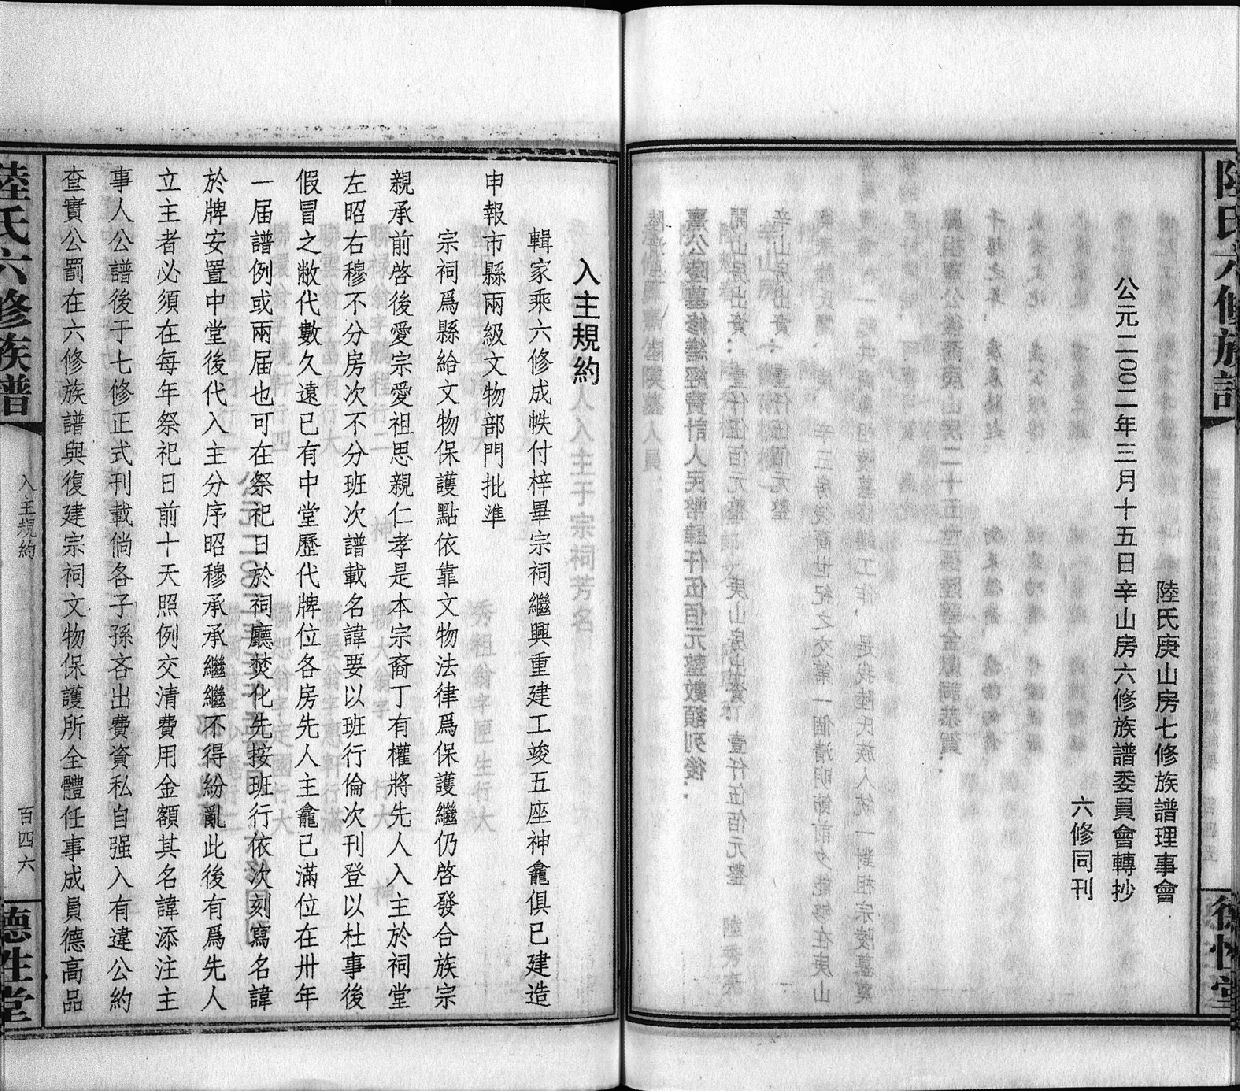 陸氏庚山房七修族譜理事會
公元二〇〇二年三月十五日辛山房六修族譜委員會轉抄
六修同刊
入主規約
輯家乘六修成帙付梓畢宗祠繼興重建工竣五座神龕俱已建造
申報市縣兩級文物部門批準
宗祠爲縣給文物保護點依靠文物法律爲保護繼仍啓發合族宗
親承前啓後愛宗愛祖思親仁孝是本宗裔丁有權將先人入主於祠堂
左昭右穆不分房次不分班次譜載名諱要以班行倫次刊登以杜事後
假冒之敝代數久遠已有中堂歷代牌位各房先人主龕已滿位在卅年
一届譜例或兩届也可在祭祀日於祠廳焚化先按班行依次刻寫名諱
於牌安置中堂後代入主分序昭穆承承繼繼不得紛亂此後有爲先人
立主者必須在每年祭祀日前十天照例交清費用金額其名諱添注主
事人公譜後于七修正式刊載倘各子孫吝出費資私自强入有違公約
查實公罰在六修族譜與復建宗祠文物保護所全體任事成員德高品
陸氏六修族譜
入主規約
百四六
德性堂